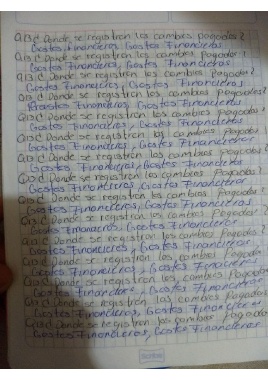 Q13 ¿ Donde se registran los cambios pagados?
Gastos Financieros, Gastos Financieros
Q13 ¿ Donde se registran los cambios Pagados?
Gastos Financieros, Gastos Financieros
Q13 ¿ Donde se registran los cambios Pagados?
Gastos Financieros, Gastos Financieros
Q13 ¿ Donde se registran los cambios Pagados?
Gastos Financieros, Gastos Financieros
Q13 ¿ Donde se registran los cambios Pagados?
Gastos Financieros, Gastos Financieros
Q13 ¿ Donde se registran los cambios Pagados?
Gastos Financieros, Gastos Financieros
Q13 ¿ Donde se registran los cambios Pagados?
Gastos Financieros, Gastos Financieros
Q13 ¿ Donde se registran los cambios Pagados?
Gastos Financieros, Gastos Financieros
Q13 ¿ Donde se registran los cambios Pagados?
Gastos Financieros, Gastos Financieros
Q13 ¿ Donde se registran los cambios Pagados?
Gastos Financieros, Gastos Financieros
Q13 ¿ Donde se registran los cambios Pagados?
Gastos Financieros, Gastos Financieros
Q13 ¿ Donde se registran los cambios Pagados
Gastos Financieros, Gastos Financieros
Q13 ¿ Donde se registran los cambios Pagados
Gastos Financieros, Gastos Financieros
Q13 ¿ Donde se registran los cambios Pagados
Gastos Financieros, Gastos Financieros
Q13 ¿ Donde se registran los cambios Pagados
Gastos Financieros, Gastos Financieros